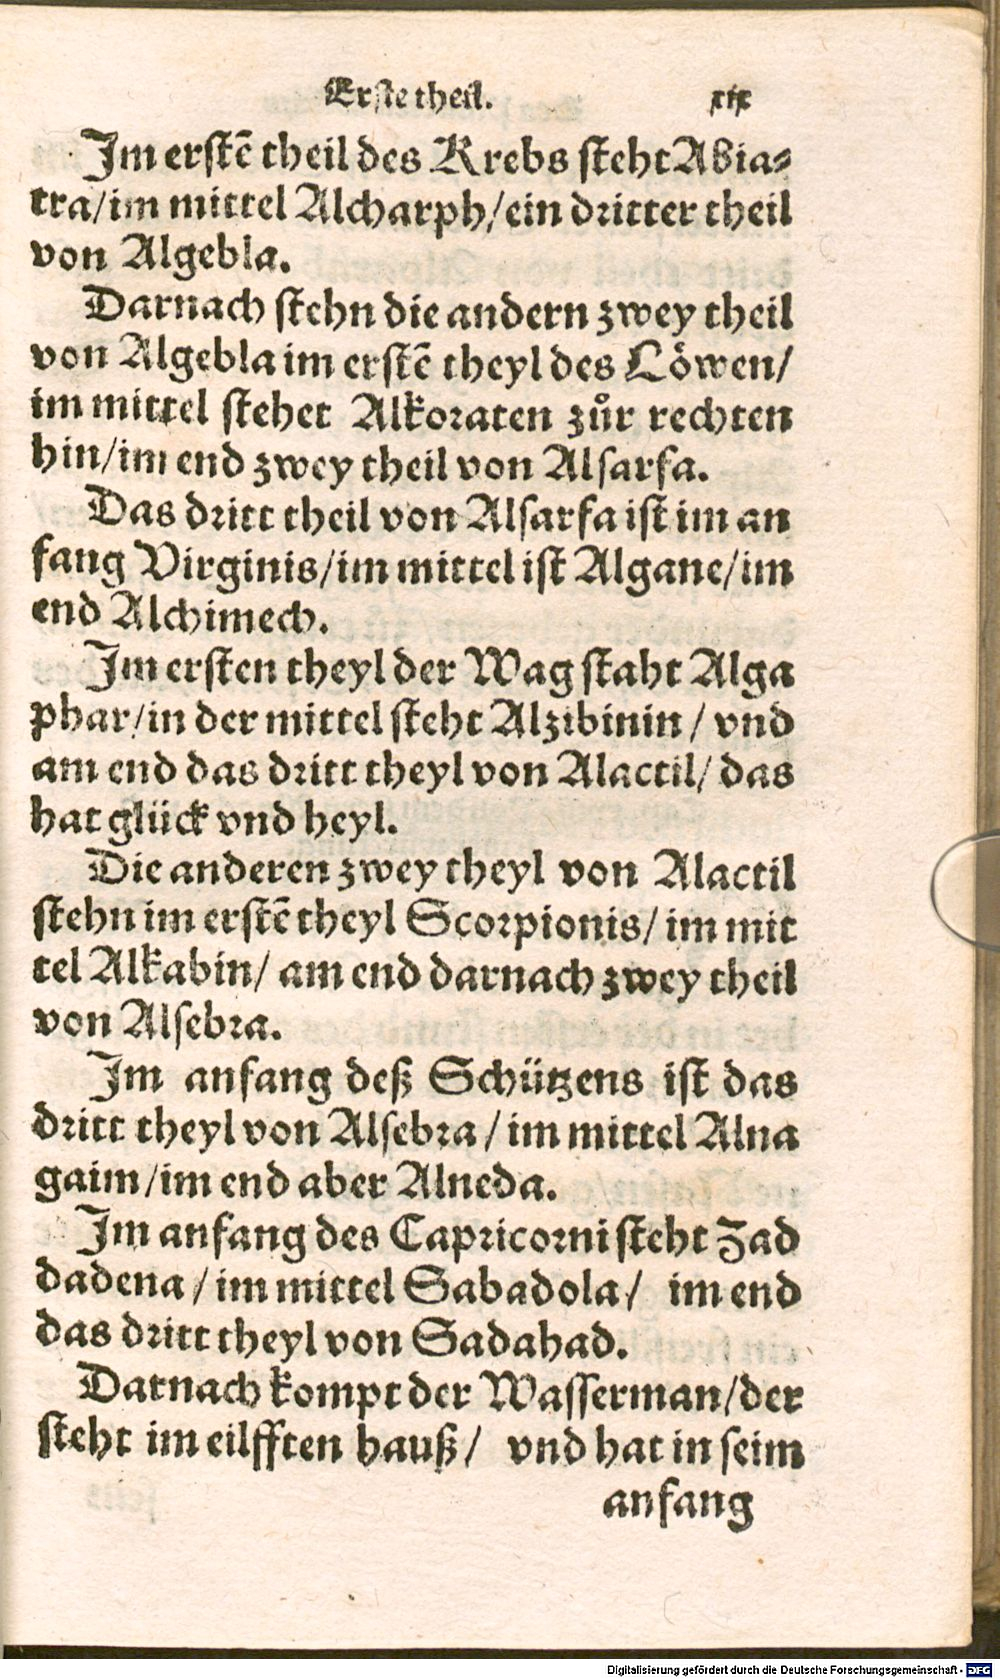 Erste theil. xix
Im erstē theil des Krebs steht Abia⸗
tra/im mittel Alcharph/ein dritter theil
von Algebla.
Darnach stehn die andern zwey theil
von Algebla im erstē theyl des Löwen/
im mittel stehet Alkoraten zůr rechten
hin/im end zwey theil von Alsarfa.
Das dritt theil von Alsarfa ist im an
fang Virginis/im mittel ist Algane/im
end Alchimech.
Im ersten theyl der Wag staht Alga
phar/in der mittel steht Alzibinin / vnd
am end das dritt theyl von Alactil/ das
hat glück vnd heyl.
Die anderen zwey theyl von Alactil
stehn im erstē theyl Scorpionis/ im mit
tel Alkabin/ am end darnach zwey theil
von Alsebra.
Im anfang deß Schützens ist das
dritt theyl von Alsebra / im mittel Alna
gaim/im end aber Alneda.
Im anfang des Capricorni steht Zad
dadena / im mittel Sabadola/ im end
das dritt theyl von Sadahad.
Darnach kompt der Wasserman/der
steht im eilfften hauß/ vnd hat in seim
anfang
Digitalisierung gefördert durch die Deutsche Forschungsgemeinschaft - DFG